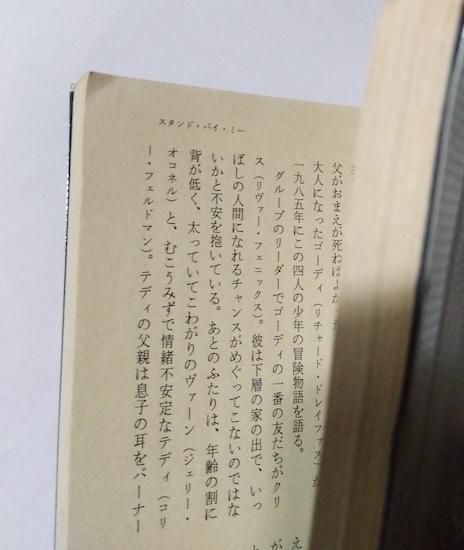 スタンド・バイ・ミー
父がおまえが死ねばよか
大人になったゴーディ（リチャード・ドレイファス）が
一九八五年にこの四人の少年の冒険物語を語る。
グループのリーダーでゴーディの一番の友だちがクリ
ス（リヴァー・フェニックス）。彼は下層の家の出で、いっ
ぱしの人間になれるチャンスがめぐってこないのではな
いかと不安を抱いている。あとのふたりは、年齢の割に
背が低く、太っていてこわがりのヴァーン（ジェリー・
オコネル）と、むこうみずで情緒不安定なテディ（コリ
ー・フェルドマン）。テディの父親は息子の耳をバーナー